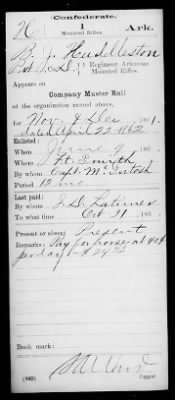 Confederate.
H 1 Ark.
Mounted Rifles.
B. J. Huddleston
Co. D., 1 Regiment Arkansas
Mounted Rifles.
Appears on
Company Muster Roll
of the organization named above,
for Nov & Dec 1861.
dated April 22 1862
Enlisted:
When June 9 186
Where Ft. Smith
By whom Capt. McIntosh
Period 12 mo.
Last paid:
By whom J. D. Latimer
To what time Oct 31 186
Present or absent Present
Remarks: Pay for horse at 40¢
per day $24
Book mark:
(642)
Copyist